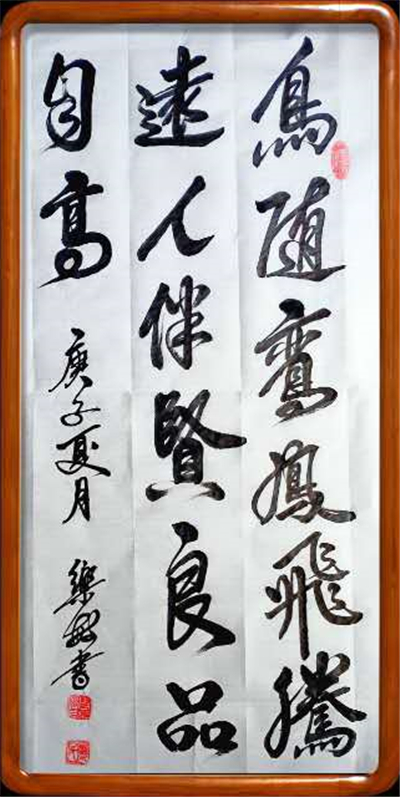 鳥随鸞鳳飛騰
遠人伴賢良品
自高
庚子夏月
書